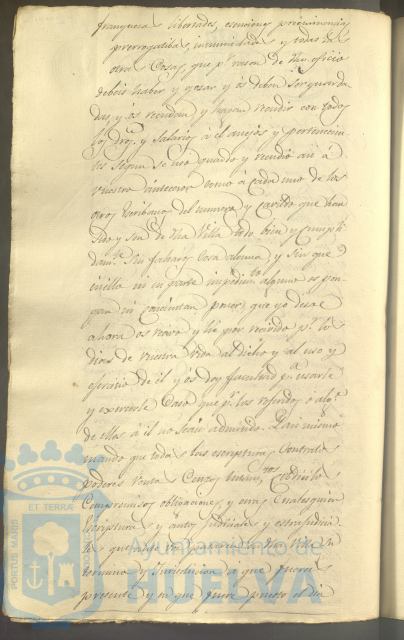 franquezas libertades, esenciones preeminencias
prerrogativas, inmunidades y todas las
otras cosas, que pr. razon de dho. oficio
debeis haber y gozar y os deben ser guarda
das, y os recudan y hagan recudir con todos
los dros. y salarios á él anejos y pertenecien
tes segun se usó guardó y recudió asi á
vuestro antecesor como á cada uno de los
otros Escribanos del numero y Cavildo que han
sido y son de dha Villa todo bien y cumpli
damte. sin faltaros cosa alguna y sin que
en ello ni en parte impedimto. alguno os pon
gan ni consientan poner que yo desde
ahora os recivo y he por recivido pr. los
dias de vuestra vida al dicho y al uso y
egercicio de él y os doy facultad pa. usarle
y exercerle caso que pr. los referidos ó algo.
de ellos á él no seais admitido. Y asi mismo
mando que todas las escrituras Contratos
poderes ventas Censos testamtos. Codicilos
Compromisos obligaciones y otras cualesquier
Escrituras y autos Judiciales y estrajudicia
les que ante vos dha Villa su
termino y Jurisdicion á que fuereis
presente y en que fuere puesto el dia
PORTUS MARIS ET TERRÆ
Ayuntamiento de
HUELVA